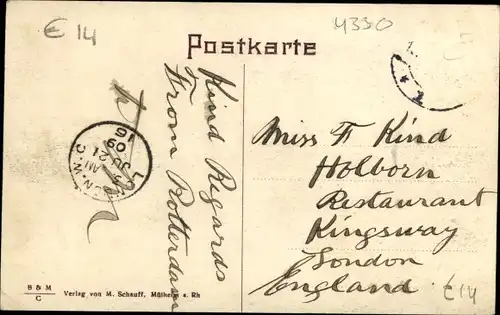 € 14
4330
Postkarte
Kind Regards
From Rotterdam
L.
N.W.C
AM
JU 21
09
16
Miss F Kind
Holborn
Restaurant
Kingsway
London
England
€14
B & M
C
Verlag von M. Schauff, Mülheim a. Rh